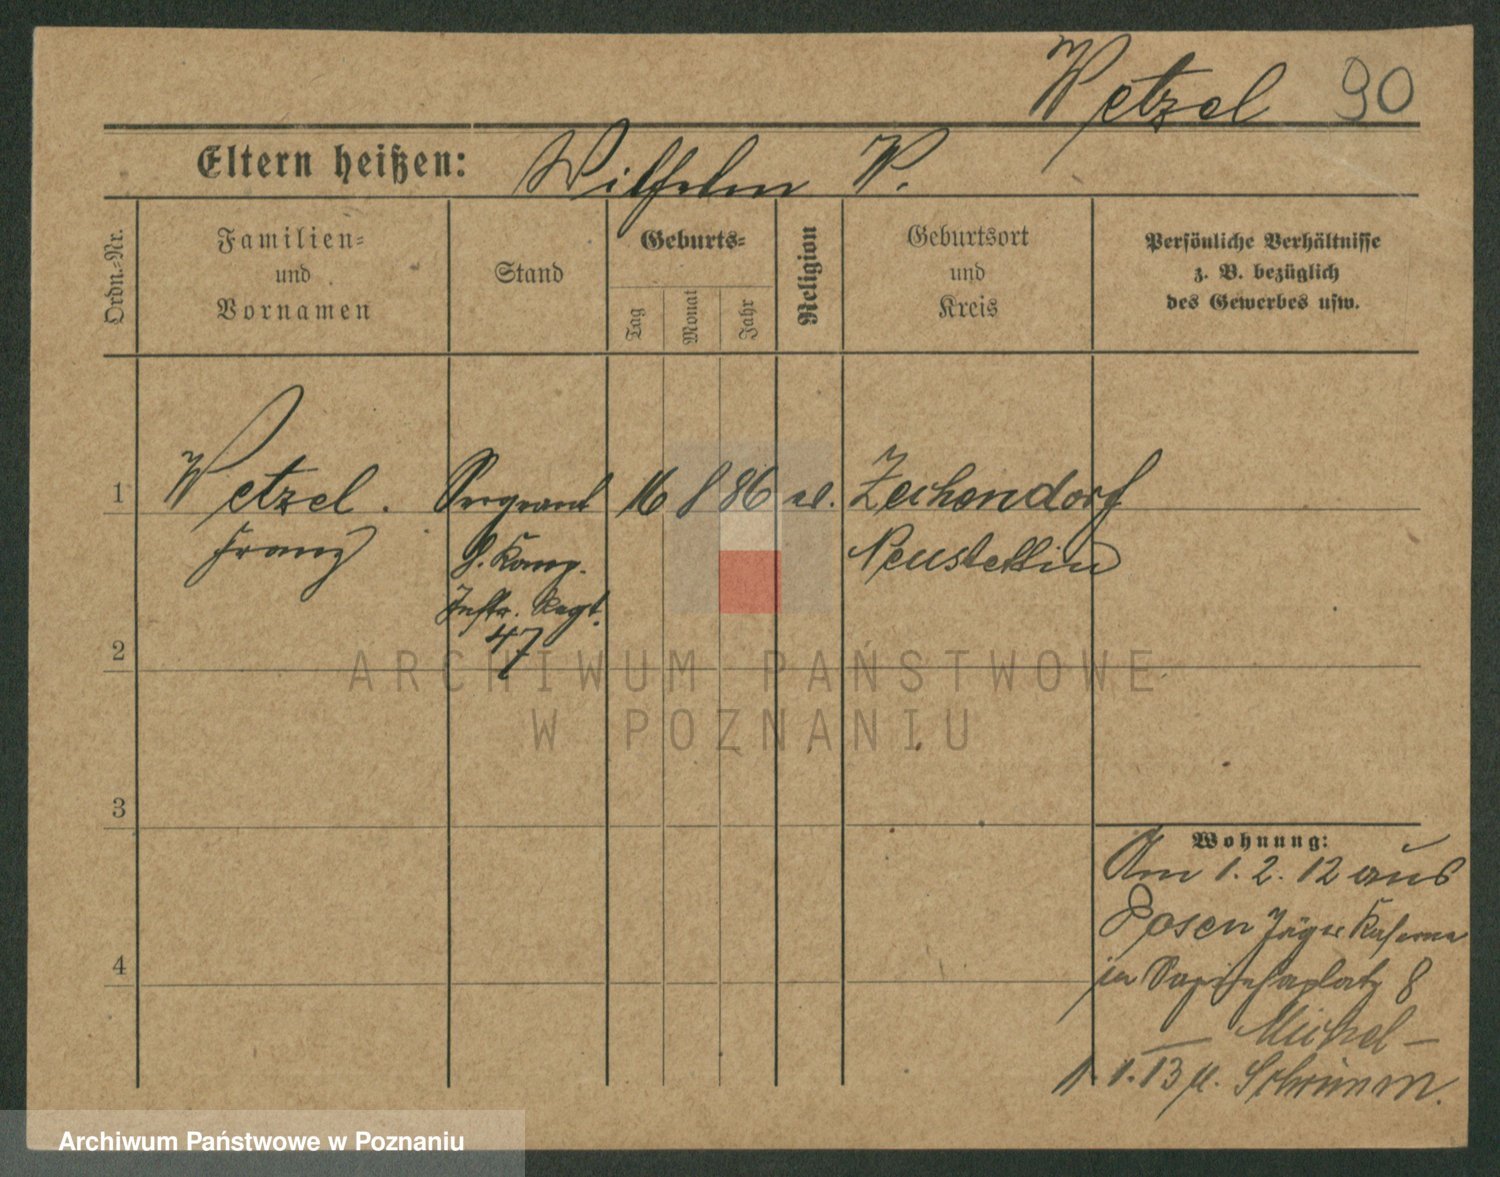 Wetzel 90
Eltern heißen: Wilhelm W.
Ordn.-Nr.
Familien-
und
Vornamen
Stand
Geburts-
Tag
Monat
Jahr
Religion
Geburtsort
und
Kreis
Persönliche Verhältnisse
z. B. bezüglich
des Gewerbes usw.
1 Wetzel. Sergeant 16 8 86 ev. Zechendorf
Franz 8. Komp. Neustettin
Inftr. Regt.
47
2
3
4
Wohnung:
Am 1. 2. 12 aus
Posen Jäger Kaserne
in Sapiehaplatz 8
Michel –
1. 1. 13 n. Schrimm.
ARCHIWUM PAŃSTWOWE
W POZNANIU
Archiwum Państwowe w Poznaniu